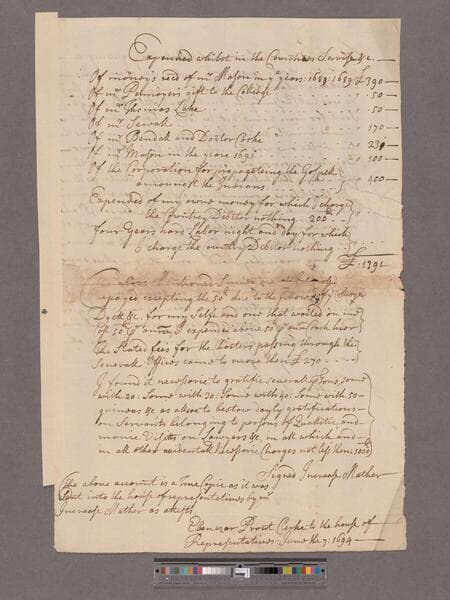 Expended whilst in the Countries Service &c.
Of moneys recd of mr Mason in ye years: 1689: £ 390
Of mr Pelmoyers gift to the Colledge 50
Of mr Thomas Lake 50
Of mr Sewall 170
Of mr Bendall and Doctor Cooke 231
Of mr Mason in the yeare 1691 100
Of the Corporation for propogateing the Gospell
amoungst the Indians 400
Expended of my owne money for which I charge
the Countrey Debtor nothing. 200£
four Years hard Labor night and day for which
I charge the country Debtor nothing
£: 1391
excepting the 50£ due to the fellows of ye Colledge
Dyett &c. for my Selfe and one that waited on me
I expended above 50£
The Stated fees for the Charters passing through the
Severall Offices came to more then £270
I found it necessarie to gratifie severall psons, some
with 20: Some with 30: Some with 40: Some with 50
guineas &c as also to bestow dayly gratifications
on Servants belonging to persons of Quallitie, and
Visitts on Lawyers &c. in all which and
in all other accidentall Necessarie Charges not less then:
Signed Increase Mather
The above account is a True Copie as it was
Sent into the house of representatives by mr
Increase Mather as attests
Ebenezer Prout Clerke to the house of
Representatives: June the 7: 1694